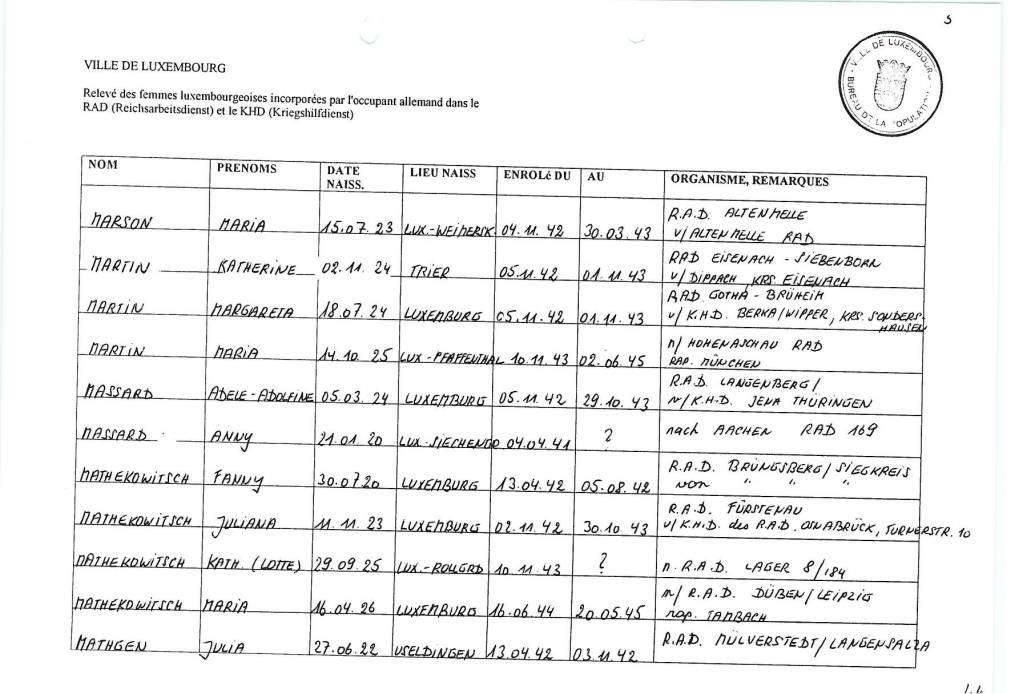 5
VILLE DE LUXEMBOURG
VILLE DE LUXEMBOURG
BUREAU DE LA POPULATION
Relevé des femmes luxembourgeoises incorporées par l'occupant allemand dans le
RAD (Reichsarbeitsdienst) et le KHD (Kriegshilfdienst)
NOM PRENOMS DATE NAISS. LIEU NAISS ENROLé DU AU ORGANISME, REMARQUES
MARSON MARIA 15.07.23 LUX.-WEIMERSK 04.11.42 30.03.43 R.A.D. ALTENMELLE
v/ALTENMELLE RAD
MARTIN KATHERINE 02.11.24 TRIER 05.11.42 01.11.43 RAD EISENACH - SIEBENBORN
v/DIPPACH, KRS. EISENACH
MARTIN MARGARETA 18.07.24 LUXEMBURG 05.11.42 01.11.43 RAD GOTHA - BRÜHEIM
v/K.H.D. BERKA/WIPPER, KRS. SONDERS-
HAUSEN
MARTIN MARIA 14.10.25 LUX-PFAFFENTHAL 10.11.43 02.06.45 n/HOHENASCHAU RAD
RAP. MÜNCHEN
MASSARD ADELE-ADOLFINE 05.03.24 LUXEMBURG 05.11.42 29.10.43 R.A.D. LANGENBERG/
v/K.H.D. JENA THÜRINGEN
MASSARD ANNY 21.01.20 LUX-SIECHENGR 04.04.41 ? nach AACHEN RAD 169
MATHEKOWITSCH FANNY 30.0720 LUXEMBURG 13.04.42 05.08.42 R.A.D. BRÜNGSBERG/SIEGKREIS
von " " "
MATHEKOWITSCH JULIANA 11.11.23 LUXEMBURG 02.11.42 30.10.43 R.A.D. FÜRSTENAU
v/K.H.D. des R.A.D. OSNABRÜCK, TURNERSTR. 10
MATHEKOWITSCH KATH. (LOTTE) 29.09.25 LUX.-ROLLGRD 10.11.43 ? n. R.A.D. LAGER 8/184
MATHEKOWITSCH MARIA 16.04.26 LUXEMBURG 16.06.44 20.05.45 n/R.A.D. DÜBEN/LEIPZIG
rap. TAMBACH
MATHGEN JULIA 27.06.22 USELDINGEN 13.04.42 03.11.42 R.A.D. MÜLVERSTEDT/LANGENSALZA